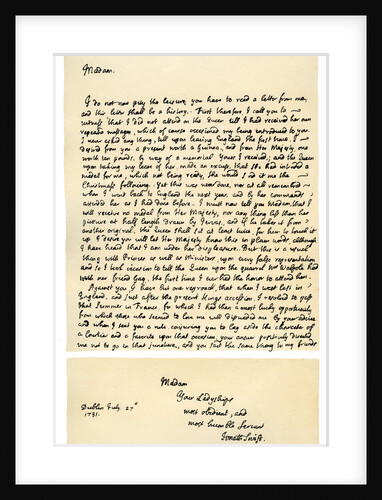 Madam.
I do not now pity the leisure you have to read a letter from me,
and this letter shall be a history. First therefore I call you to
witness that I did not attend on the Queen till I had received her own
repeated messages, which of course occasioned my being introduced to you.
I never asked any thing till upon leaving England the first time, I
desired from you a present worth a Guinea, and from Her Majesty one
worth ten pounds, by way of a memorial. Yours I received; and the Queen
upon taking my leave of her made an excuse, that she had intended a
medal for me, which not being ready, she would send it me the
Christmass following. Yet this was never done, nor at all remembred
when I went back to England the next year, and by her commands
attended her as I had done before. I must now tell you Madam, that I
will receive no medal from Her Majesty, nor any thing less than her
picture at half length drawn by Jervas, and if he takes it from
another original, the Queen shall sit at least twice, for him to touch it
up. I desire you will let Her Majesty know this in plain words, although
I have heard that I am under her displeasure. But this is a usual
thing with Princes as well as Ministers, upon every false representation
and so I took occasion to tell the Queen upon the quarrel Mr Walpole had
with our friend Gay, the first time I ever had the honor to attend her.
Against you I have but one reproach, that when I was last in
England, and just after the present Kings accession, I resolved to pass
that summer in France, for which I had then a most lucky opportunity
from which those who seemed to love me well dissuaded me by your advice
and when I sent you a note conjuring you to lay aside the character of
a Courtier and a favorite upon that occasion, your answer positively directed
me not to go in that juncture, and you said the same thing to my friends
Madam
Your Ladyships
most obedient, and
most humble servant
Jonath Swift.
Dublin July. 27th
1731.